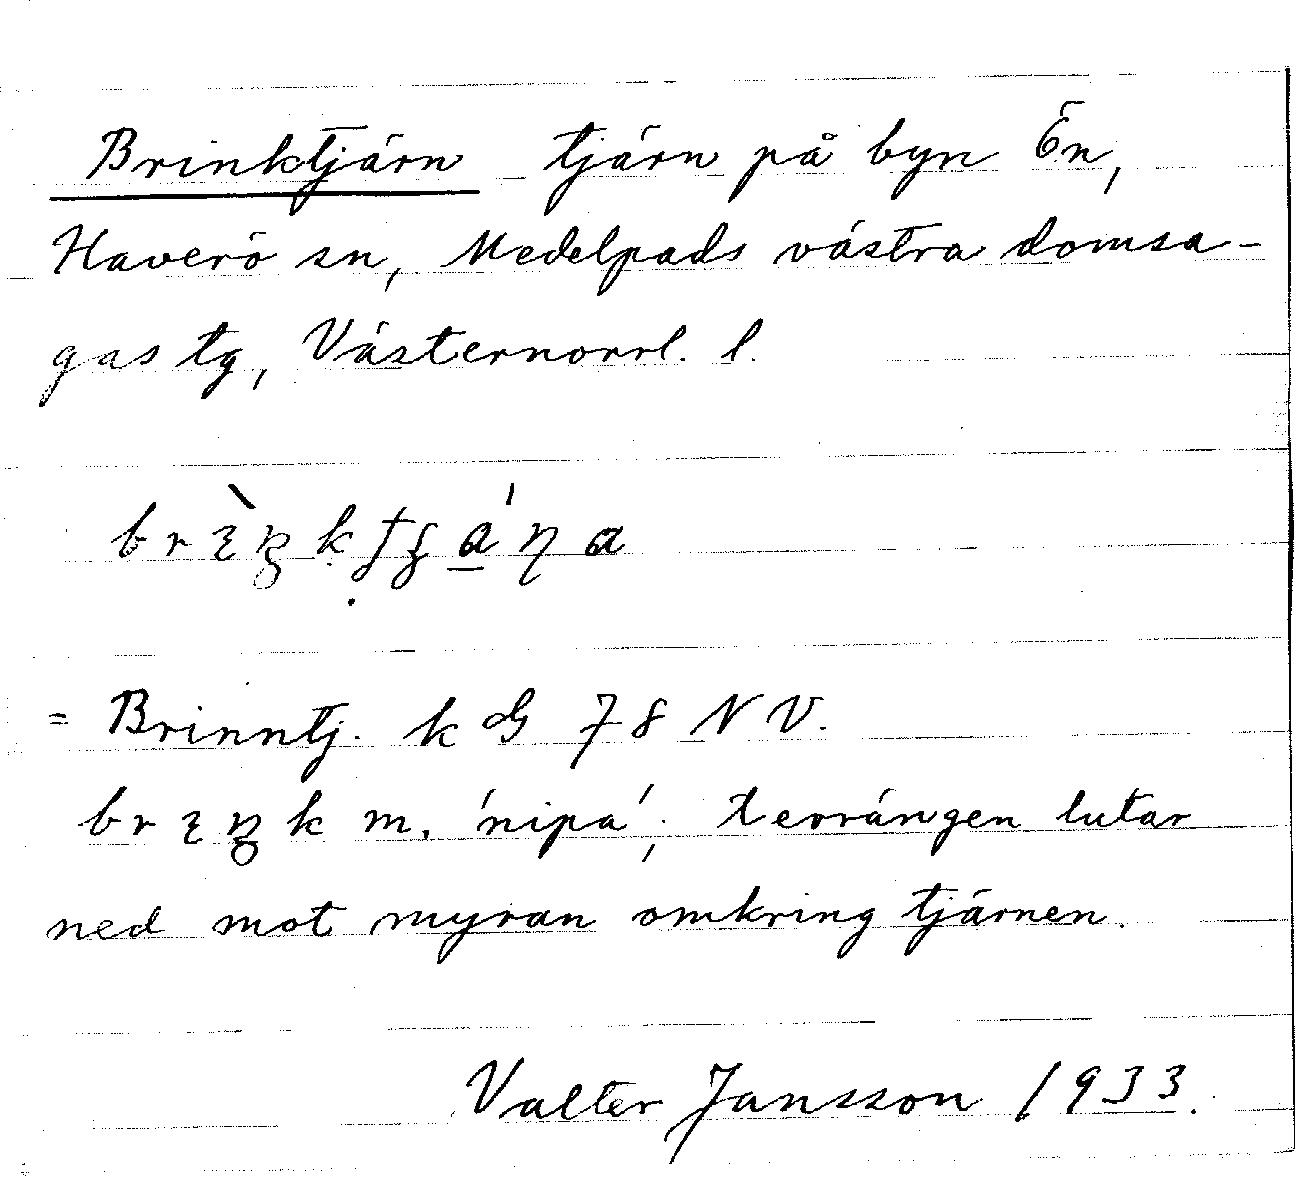 Brinktjärn tjärn på byn Ön,
Haverö sn, Medelpads västra domsa-
gas tg, Västernorrl. l.
= Brinntj. k 78 NV.
m. 'nipa'; terrängen lutar
ned mot myran omkring tjärnen.
Valter Jansson 1933.